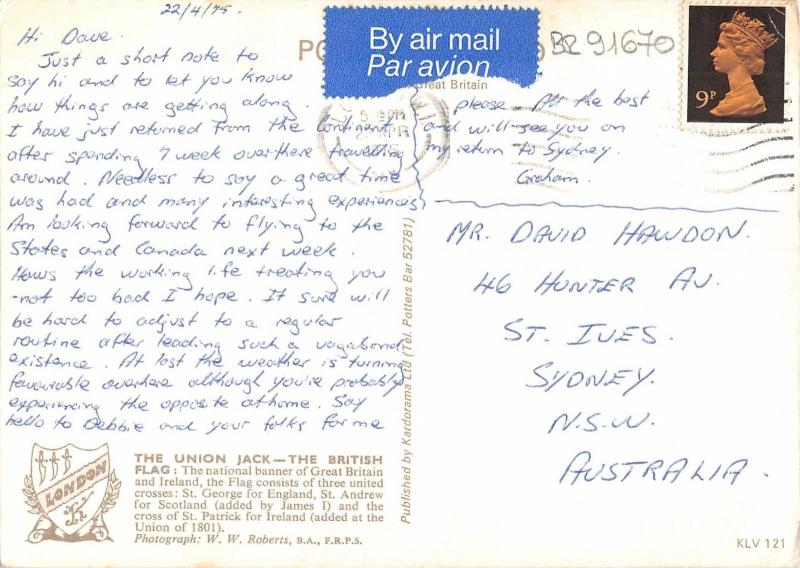 22/4/75.
Hi Dave.
Just a short note to
say hi and to let you know
how things are getting along.
I have just returned from the continent
after spending 7 week over there travelling
around. Needless to say a great time
was had and many interesting experiences
Am looking forward to flying to the
States and Canada next week.
Hows the working life treating you
-not too bad I hope. It sure will
be hard to adjust to a regular
routine after leading such a vagabond
existence. At last the weather is turning
favourable overhere although you're probably
experiencing the opposite at home. Say
hello to Debbie and your folks for me
please. All the best
and will see you on
my return to Sydney.
Graham.
By air mail
Par avion
BR 91670
PO
Great Britain
9P
MR. DAVID HAWDON.
46 HUNTER AV.
ST. IVES.
SYDNEY.
N.S.W.
AUSTRALIA.
Published by Kardorama Ltd (Tel. Potters Bar 52781)
LONDON
THE UNION JACK—THE BRITISH
FLAG: The national banner of Great Britain
and Ireland, the Flag consists of three united
crosses: St. George for England, St. Andrew
for Scotland (added by James I) and the
cross of St. Patrick for Ireland (added at the
Union of 1801).
Photograph: W. W. Roberts, B.A., F.R.P.S.
KLV 121